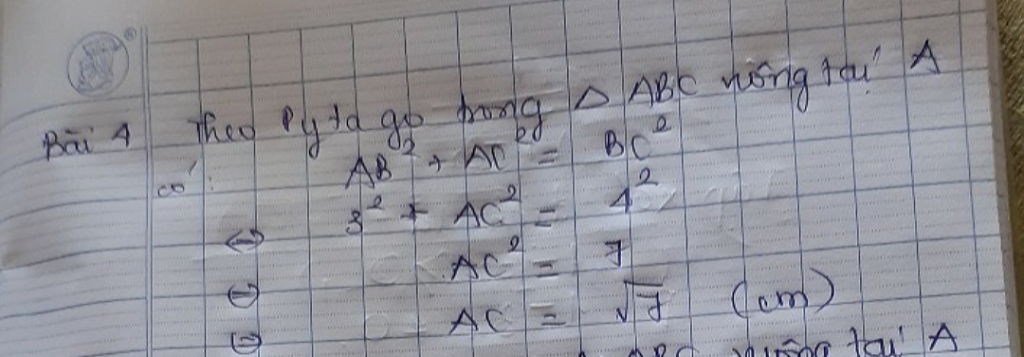 Bài 4 Theo Pytago trong Δ ABC vuông tại A
có: AB² + AC² = BC²
⇔ 3² + AC² = 4²
⇔ AC² = 7
⇔ AC = √7 (cm)
ABC vuông tại A